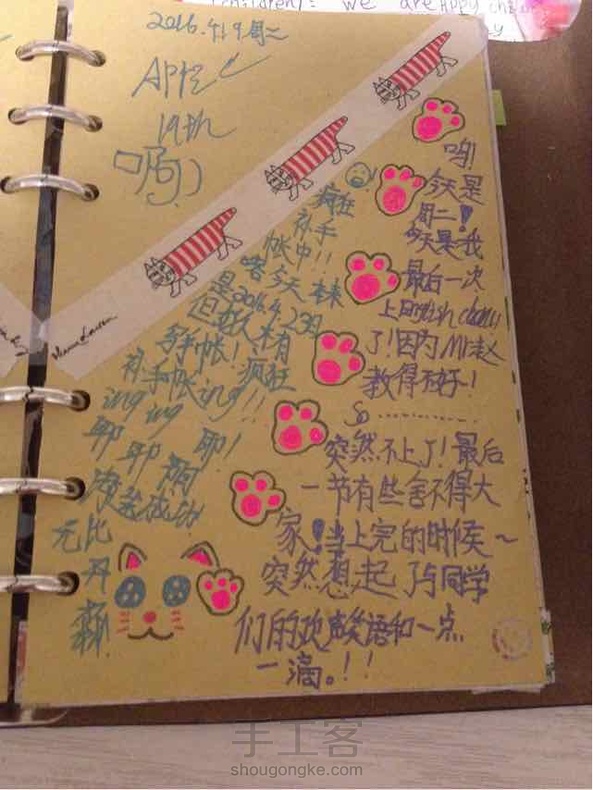 children): we are happy
2016.4.19周二
19th
哟!
今天是
周二!
今天是我
最后一次
上English class
了!因为Mr赵
教得不好!
So
突然不上了!最后
一节有些舍不得大
家!当上完的时候~
突然想起了与同学
们的欢声笑语和一点
一滴。!!
疯狂
补手
帐中!!
今天本来
是2016.4.23日
但好久没有
写手帐!
补手帐ing!!疯狂
ing ing
耶 耶 耶!
成功
无比
开
手工客
shougongke.com